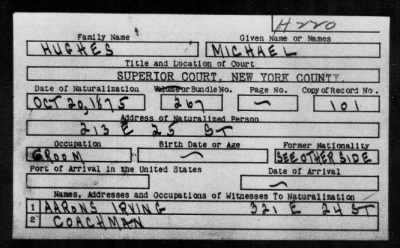 H-220
Family Name Given Name or Names
HUGHES MICHAEL
Title and Location of Court
SUPERIOR COURT, NEW YORK COUNTY.
Date of Naturalization Volume or Bundle No. Page No. Copy of Record No.
OCT 20, 1875 267 — 101
Address of Naturalized Person
213 E 25 ST
Occupation Birth Date or Age Former Nationality
GROOM — SEE OTHER SIDE
Port of Arrival in the United States Date of Arrival
— —
Names, Addresses and Occupations of Witnesses To Naturalization
1 AARONS IRVING 321 E 24 ST
2 COACHMAN